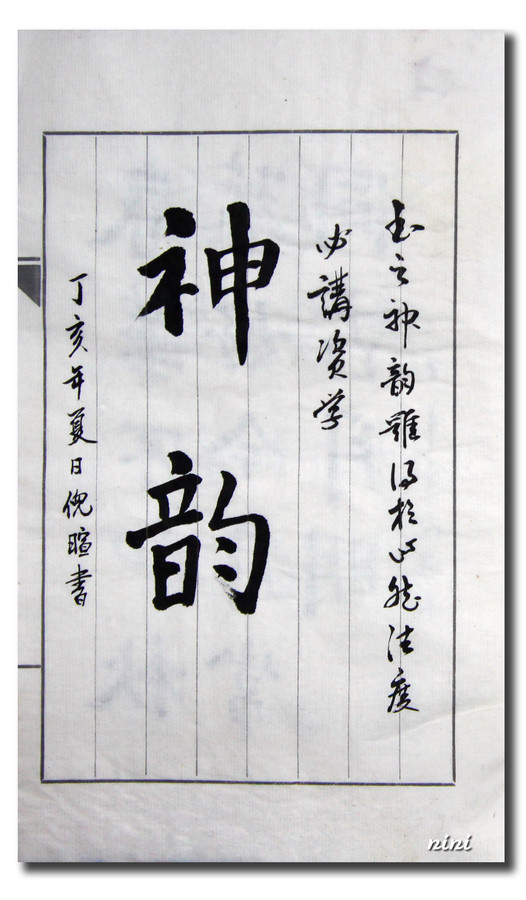 书之神韵雖得於心然法度
必講资学
神韵
丁亥年夏日倪暄書
nini